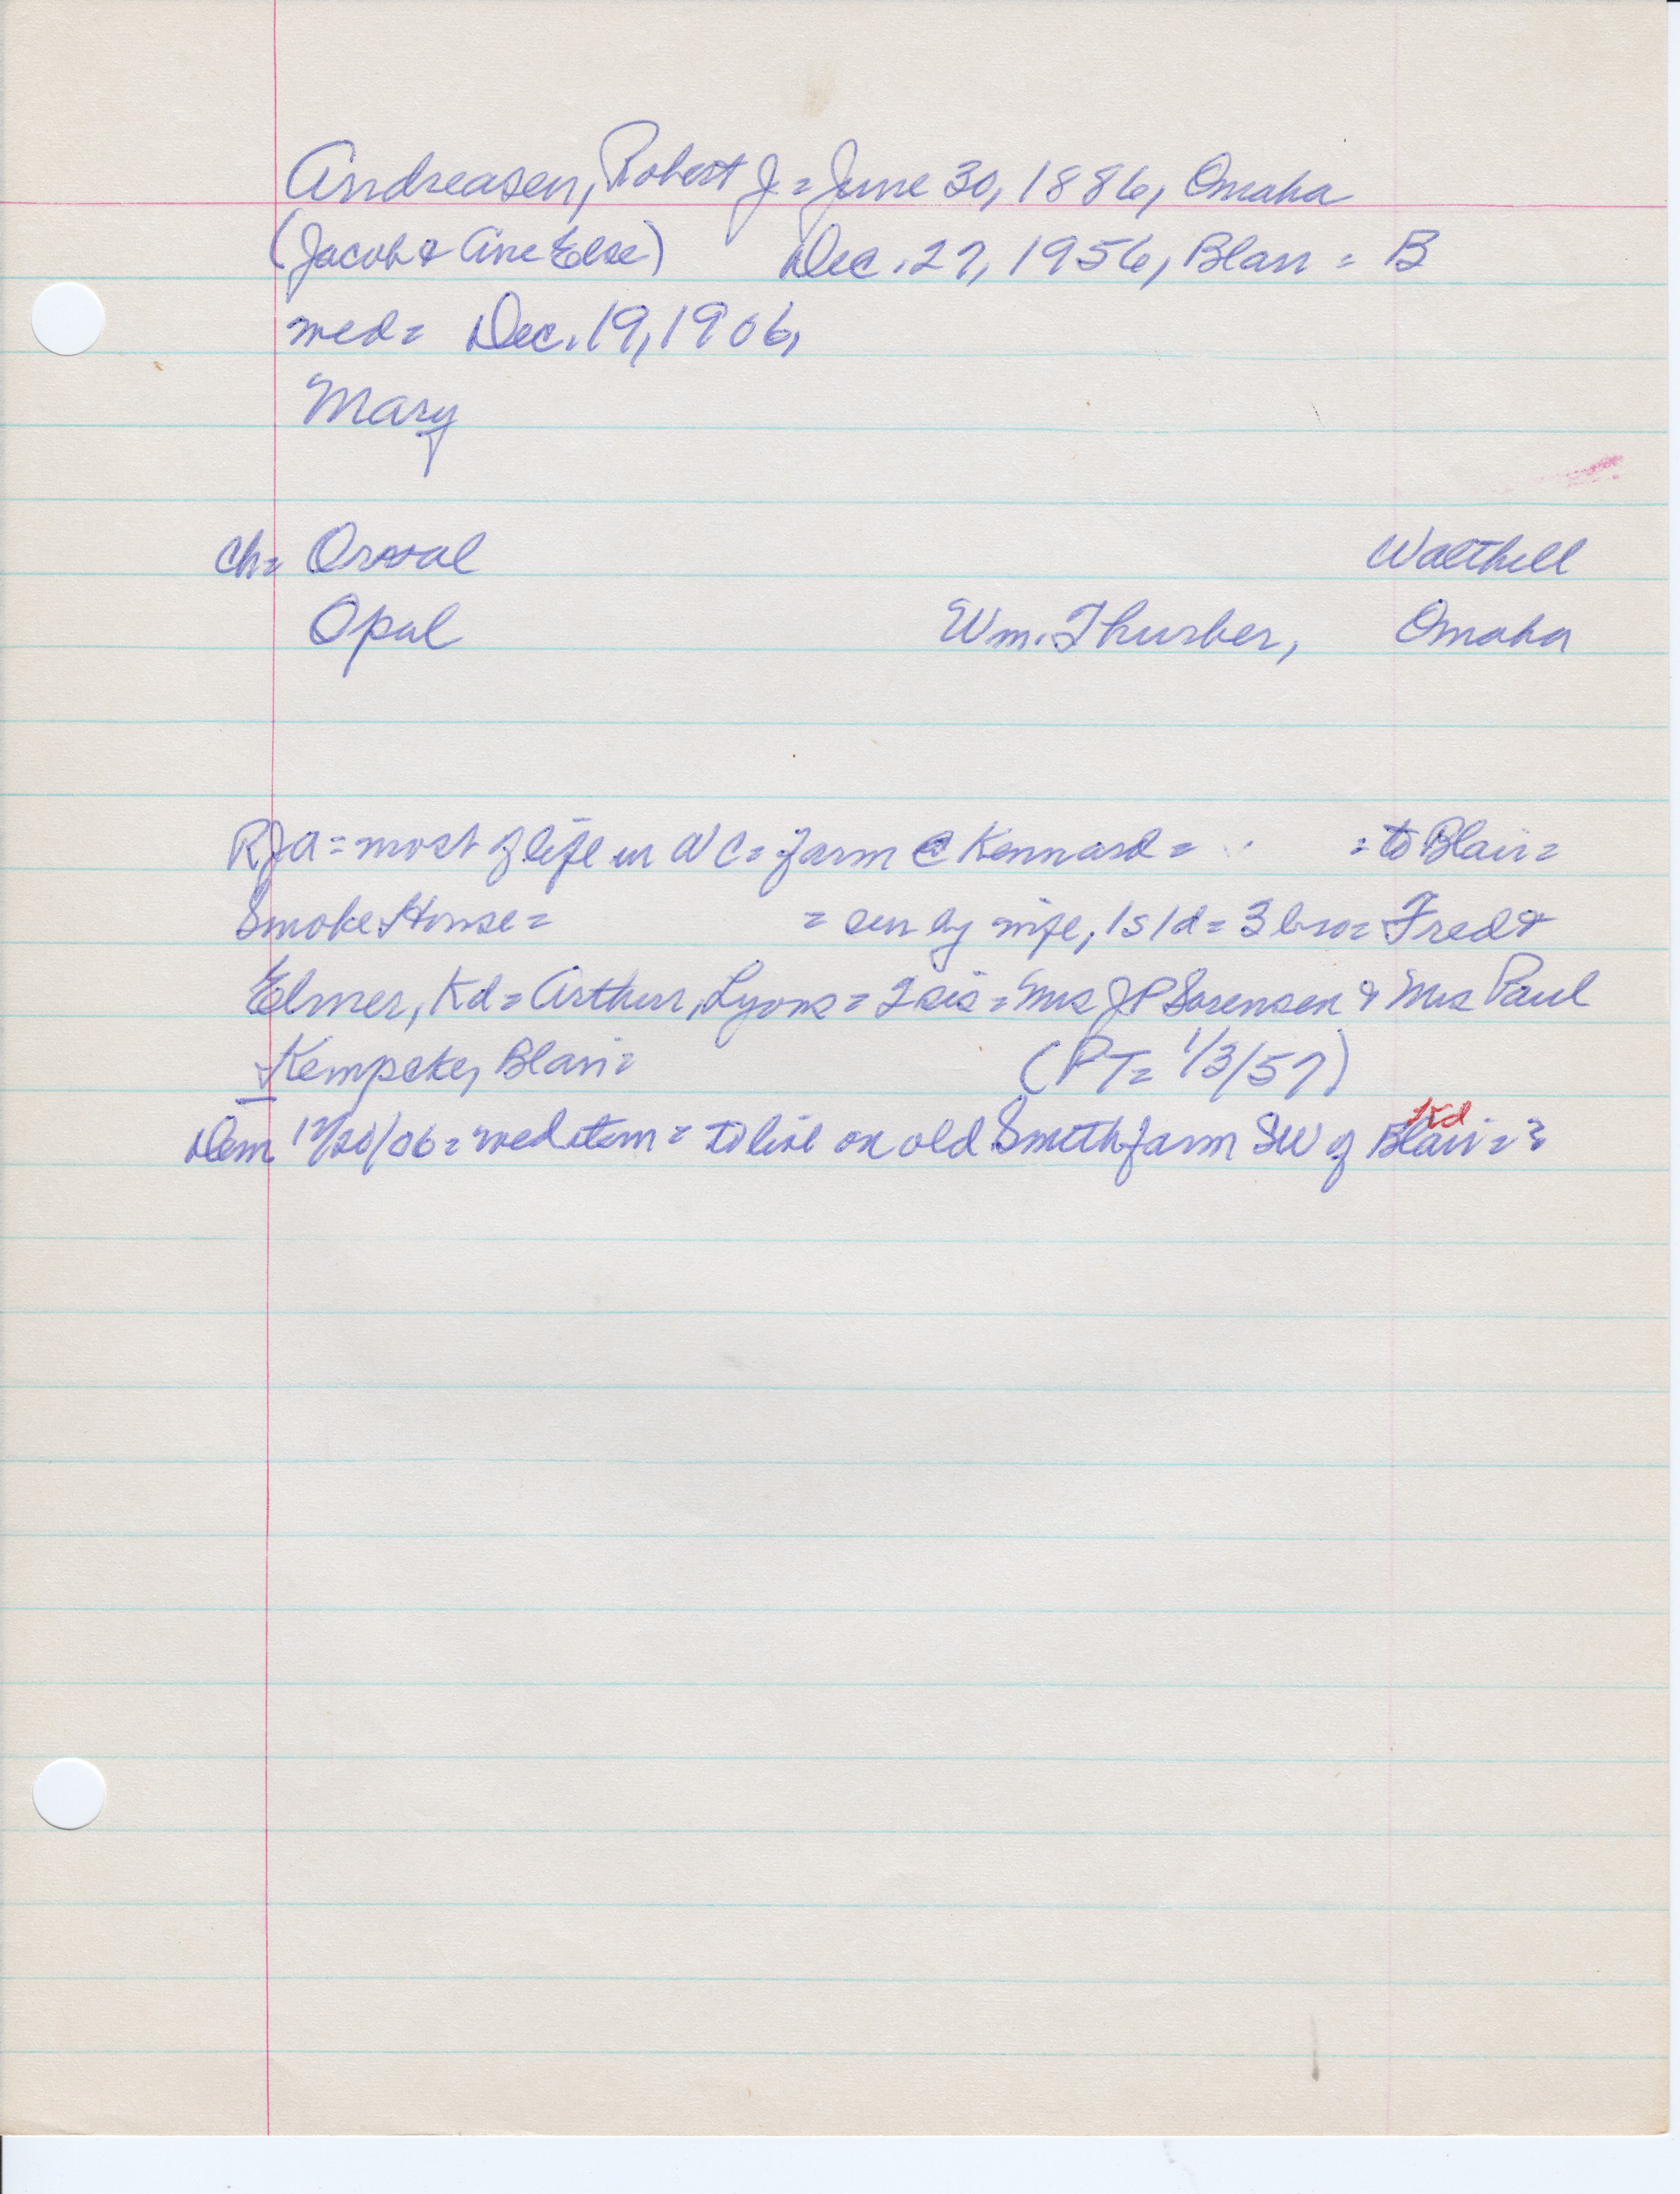 Andreasen, Robert J = June 30, 1886, Omaha
(Jacob & Ane Else) Dec. 27, 1956, Blair = B
wed = Dec. 19, 1906,
Mary
ch = Orval Walthill
Opal Wm. Thurber, Omaha
RJA = most of life in WC = farm @ Kennard = = to Blair =
Smoke House = = sur by wife, 1s 1d = 3 bro = Fred &
Elmer, Kd = Arthur, Lyons = 2 sis = Mrs JP Sorensen & Mrs Paul
Kempcke, Blair = (PT = 1/3/57)
Kd
Dem 12/20/06 = wed item = to live on old Smith farm SW of Blair = ?